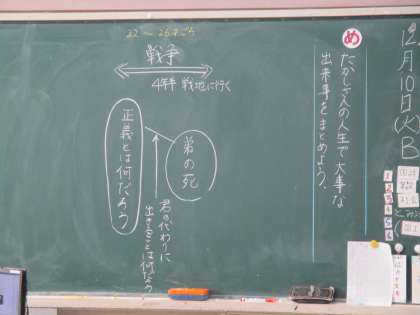 12月10日(火)B
め
たかしさんの人生で大事な
出来事をまとめよう。
22～26才ごろ
戦争
4年半 戦地に行く
弟の死
君の代わりに
出来ることは何だろう
正義とは何だろう
1
2
3
4
5
6